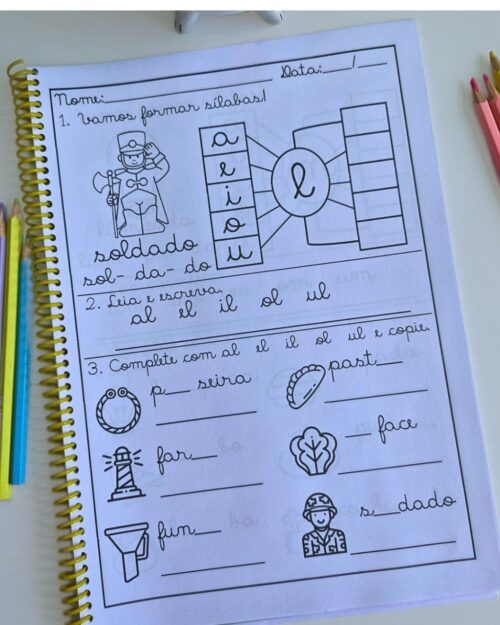 Nome:____________ Data:___/___
1. Vamos formar sílabas!
a
e
i
o
u
l
soldado
sol- da- do
2. Leia e escreva.
al el il ol ul
3. Complete com al el il ol ul e copie.
p__ seira
past__
far__
__ face
fun__
s__dado